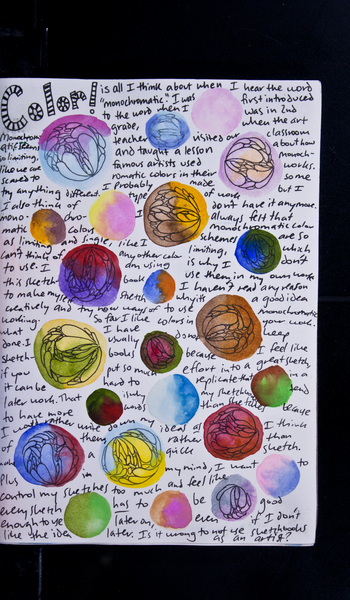 Color! is all I think about when I hear the word
"monochromatic." I was first introduced
to the word when I was in 2nd
grade, when the art
teacher visited our classroom
and taught a lesson about how
famous artists used monoch-
romatic colors in their works.
I probably made some
type of work but I
don't have it anymore.
I also think of always felt that
mono- chro- monochromatic color
matic colour schemes are so
as limiting and single, like I limiting, which
can't think of any other color is why I don't
to use. I am using use them in my own works
this sketch book I haven't read any reason
to make myself sketch why it's a good idea
creatively and try new ways of to use monochromatic
working. So far I like colors in your work.
what I have keep
done. I usually done
sketch books because I feel like
if you put so much effort into a great sketch
it can be hard to replicate this in a
later work. That is why my sketches tend
to have more than sketches because
I would rather write down my ideas as I think
of them rather than
a quick sketch.
Plus in my mind, I want to
control my sketches too much and feel like
every sketch has to be good
enough to use later on, even if I don't
like the idea later. Is it wrong to not use sketchbooks
as an artist?